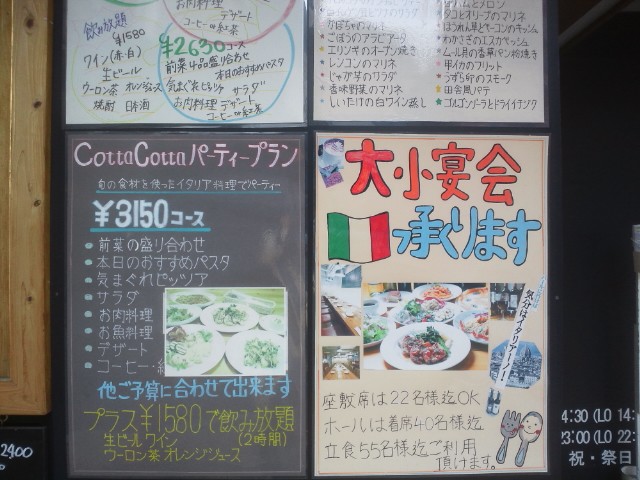 飲み放題
¥1580
ワイン(赤・白)
生ビール
ウーロン茶 オレンジジュース
焼酎 日本酒
お肉料理
デザート
コーヒーor紅茶
¥2630コース
前菜4品盛り合わせ
本日のおすすめパスタ
気まぐれピッツァ サラダ
お肉料理 デザート
コーヒーor紅茶
ごぼうのアラビアータ
エリンギのオーブン焼き
レンコンのマリネ
じゃが芋のサラダ
香味野菜のマリネ
しいたけの白ワイン蒸し
タコとオリーブのマリネ
ほうれん草とベーコンのキッシュ
わかさぎのエスカベッシュ
ムール貝の香草パン粉焼き
甲イカのフリット
うずら卵のスモーク
田舎風パテ
ゴルゴンゾーラとドライイチジク
CottaCottaパーティープラン
旬の食材を使ったイタリア料理でパーティー
¥3150コース
前菜の盛り合わせ
本日のおすすめパスタ
気まぐれピッツァ
サラダ
お肉料理
お魚料理
デザート
コーヒー・紅
他ご予算に合わせて出来ます
プラス¥1580で飲み放題
生ビール ワイン (2時間)
ウーロン茶 オレンジジュース
大小宴会
承ります
気分はイタリアーノ!
座敷席は22名様迄OK
ホールは着席40名様迄
立食55名様迄ご利用
頂けます。
4:30 (LO 14:
23:00 (LO 22:
祝・祭日
2900